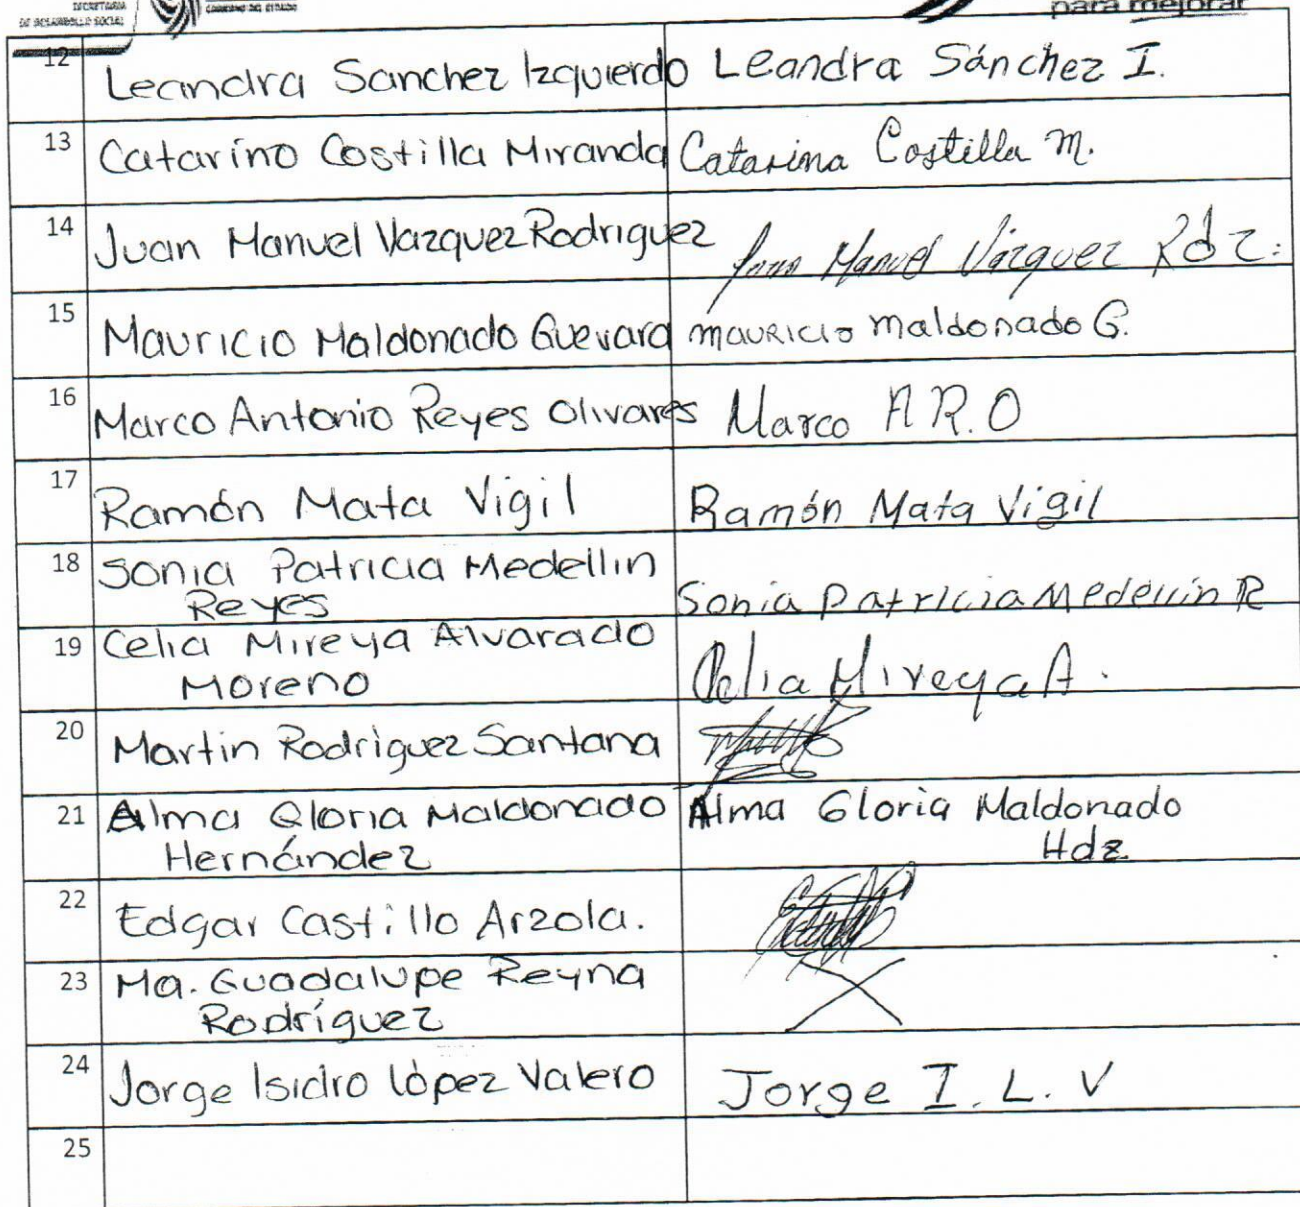 SECRETARIA
DE DESARROLLO SOCIAL
GOBIERNO DEL ESTADO
para mejorar
12 Leandra Sanchez Izquierdo Leandra Sánchez I.
13 Catarino Costilla Miranda Catarina Costilla M.
14 Juan Manuel Vazquez Rodriguez Juan Manuel Vázquez Rdz:
15 Mauricio Maldonado Guevara Mauricio Maldonado G.
16 Marco Antonio Reyes Olivares Marco A.R.O
17 Ramón Mata Vigil Ramón Mata Vigil
18 Sonia Patricia Medellin
Reyes Sonia Patricia Medellin R
19 Celia Mireya Alvarado
Moreno Celia Mireya A.
20 Martin Rodriguez Santana
21 Alma Gloria Maldonado Alma Gloria Maldonado
Hernández Hdz
22 Edgar Castillo Arzola.
23 Ma. Guadalupe Reyna
Rodríguez
24 Jorge Isidro López Valero Jorge I. L. V
25